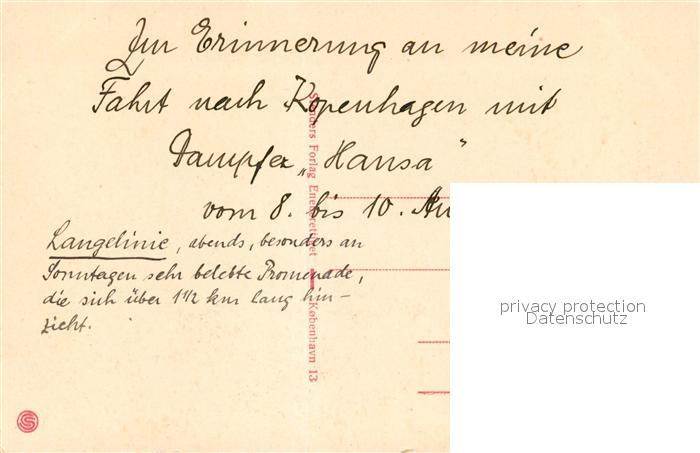 Zur Erinnerung an meine
Fahrt nach Kopenhagen mit
Dampfer „Hansa"
vom 8. bis 10. Au
Langelinie, abends, besonders an
Sonntagen sehr belebte Promenade,
die sich über 1 1/2 km lang hin-
zieht.
Stenders Forlag Eneberettiget
København 13
privacy protection
Datenschutz